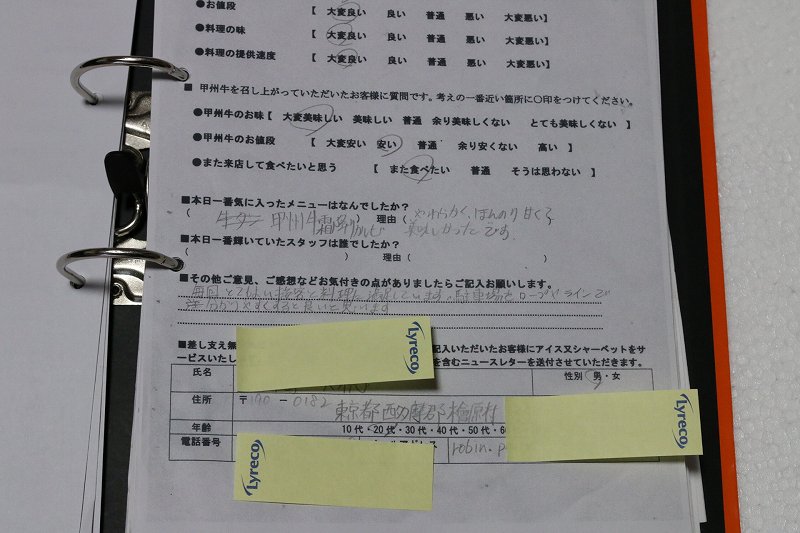 ●お値段 【 大変良い 良い 普通 悪い 大変悪い】
●料理の味 【 大変良い 良い 普通 悪い 大変悪い】
●料理の提供速度 【 大変良い 良い 普通 悪い 大変悪い】
■ 甲州牛を召し上がっていただいたお客様に質問です。考えの一番近い箇所に○印をつけてください。
●甲州牛のお味【 大変美味しい 美味しい 普通 余り美味しくない とても美味しくない 】
●甲州牛のお値段 【 大変安い 安い 普通 余り安くない 高い 】
●また来店して食べたいと思う 【 また食べたい 普通 そうは思わない 】
■本日一番気に入ったメニューはなんでしたか?
( 牛タン 甲州牛霜降りカルビ ) 理由 ( やわらかく、ほんのり甘くて 美味しかったです。
■本日一番輝いていたスタッフは誰でしたか?
( ) 理由 ( )
■その他ご意見、ご感想などお気付きの点がありましたらご記入お願いします。
毎回 接客と料理に満足しています。駐車場を ロープか ラインで
分かりやすくすると良いと思います
■差し支え無 記入いただいたお客様にアイス又シャーベットをサ
ービスいたし を含むニュースレターを送付させていただきます。
氏名 性別 男・女
住所 〒190 - 0182 東京都西多摩郡檜原村
年齢 10代・20代・30代・40代・50代・6
電話番号 アドレス robin.p
Lyreco
Lyreco
Lyreco